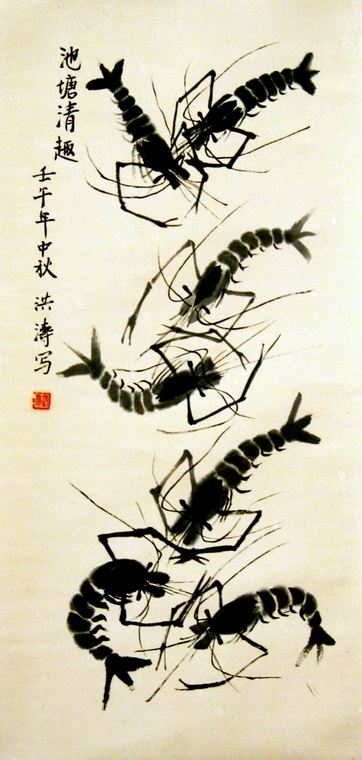 池塘清趣
壬午年中秋 洪涛写